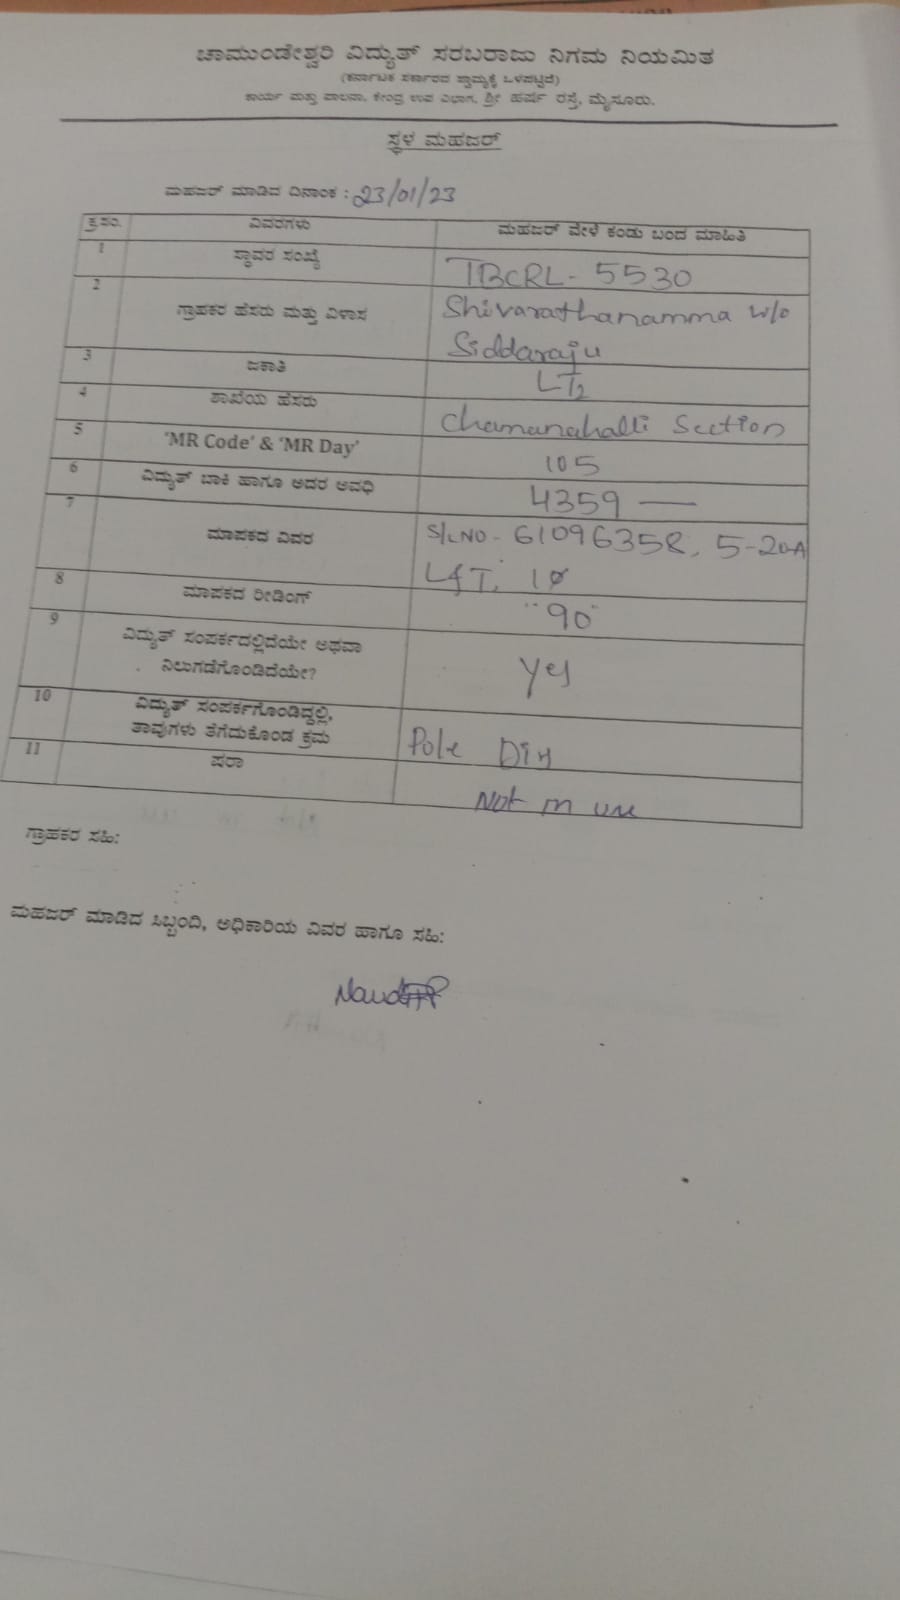 ಚಾಮುಂಡೇಶ್ವರಿ ವಿದ್ಯುತ್ ಸರಬರಾಜು ನಿಗಮ ನಿಯಮಿತ
(ಕರ್ನಾಟಕ ಸರ್ಕಾರದ ಸ್ವಾಮ್ಯಕ್ಕೆ ಒಳಪಟ್ಟಿದೆ)
ಕಾರ್ಯ ಮತ್ತು ಪಾಲನಾ, ಕೇಂದ್ರ ಉಪ ವಿಭಾಗ, ಶ್ರೀ ಹರ್ಷ ರಸ್ತೆ, ಮೈಸೂರು.
ಸ್ಥಳ ಮಹಜರ್
ಮಹಜರ್ ಮಾಡಿದ ದಿನಾಂಕ : 23/01/23
ಕ್ರ.ಸಂ. ವಿವರಗಳು ಮಹಜರ್ ವೇಳೆ ಕಂಡು ಬಂದ ಮಾಹಿತಿ
1 ಸ್ಥಾವರ ಸಂಖ್ಯೆ TBCRL - 5530
2 ಗ್ರಾಹಕರ ಹೆಸರು ಮತ್ತು ವಿಳಾಸ Shivarathanamma w/o
Siddaraju
3 ಜಕಾತಿ LT2
4 ಶಾಖೆಯ ಹೆಸರು Chamanahalli Section
5 'MR Code' & 'MR Day' 105
6 ವಿದ್ಯುತ್ ಬಾಕಿ ಹಾಗೂ ಅದರ ಅವಧಿ 4359 —
7 ಮಾಪಕದ ವಿವರ S/LNO - 61096358, 5-20A
L&T, 1Ø
8 ಮಾಪಕದ ರೀಡಿಂಗ್ "90"
9 ವಿದ್ಯುತ್ ಸಂಪರ್ಕದಲ್ಲಿದೆಯೇ ಅಥವಾ
ನಿಲುಗಡೆಗೊಂಡಿದೆಯೇ? Yes
10 ವಿದ್ಯುತ್ ಸಂಪರ್ಕಗೊಂಡಿದ್ದಲ್ಲಿ,
ತಾವುಗಳು ತೆಗೆದುಕೊಂಡ ಕ್ರಮ Pole Dis
11 ಷರಾ Not in use
ಗ್ರಾಹಕರ ಸಹಿ:
ಮಹಜರ್ ಮಾಡಿದ ಸಿಬ್ಬಂದಿ, ಅಧಿಕಾರಿಯ ವಿವರ ಹಾಗೂ ಸಹಿ: